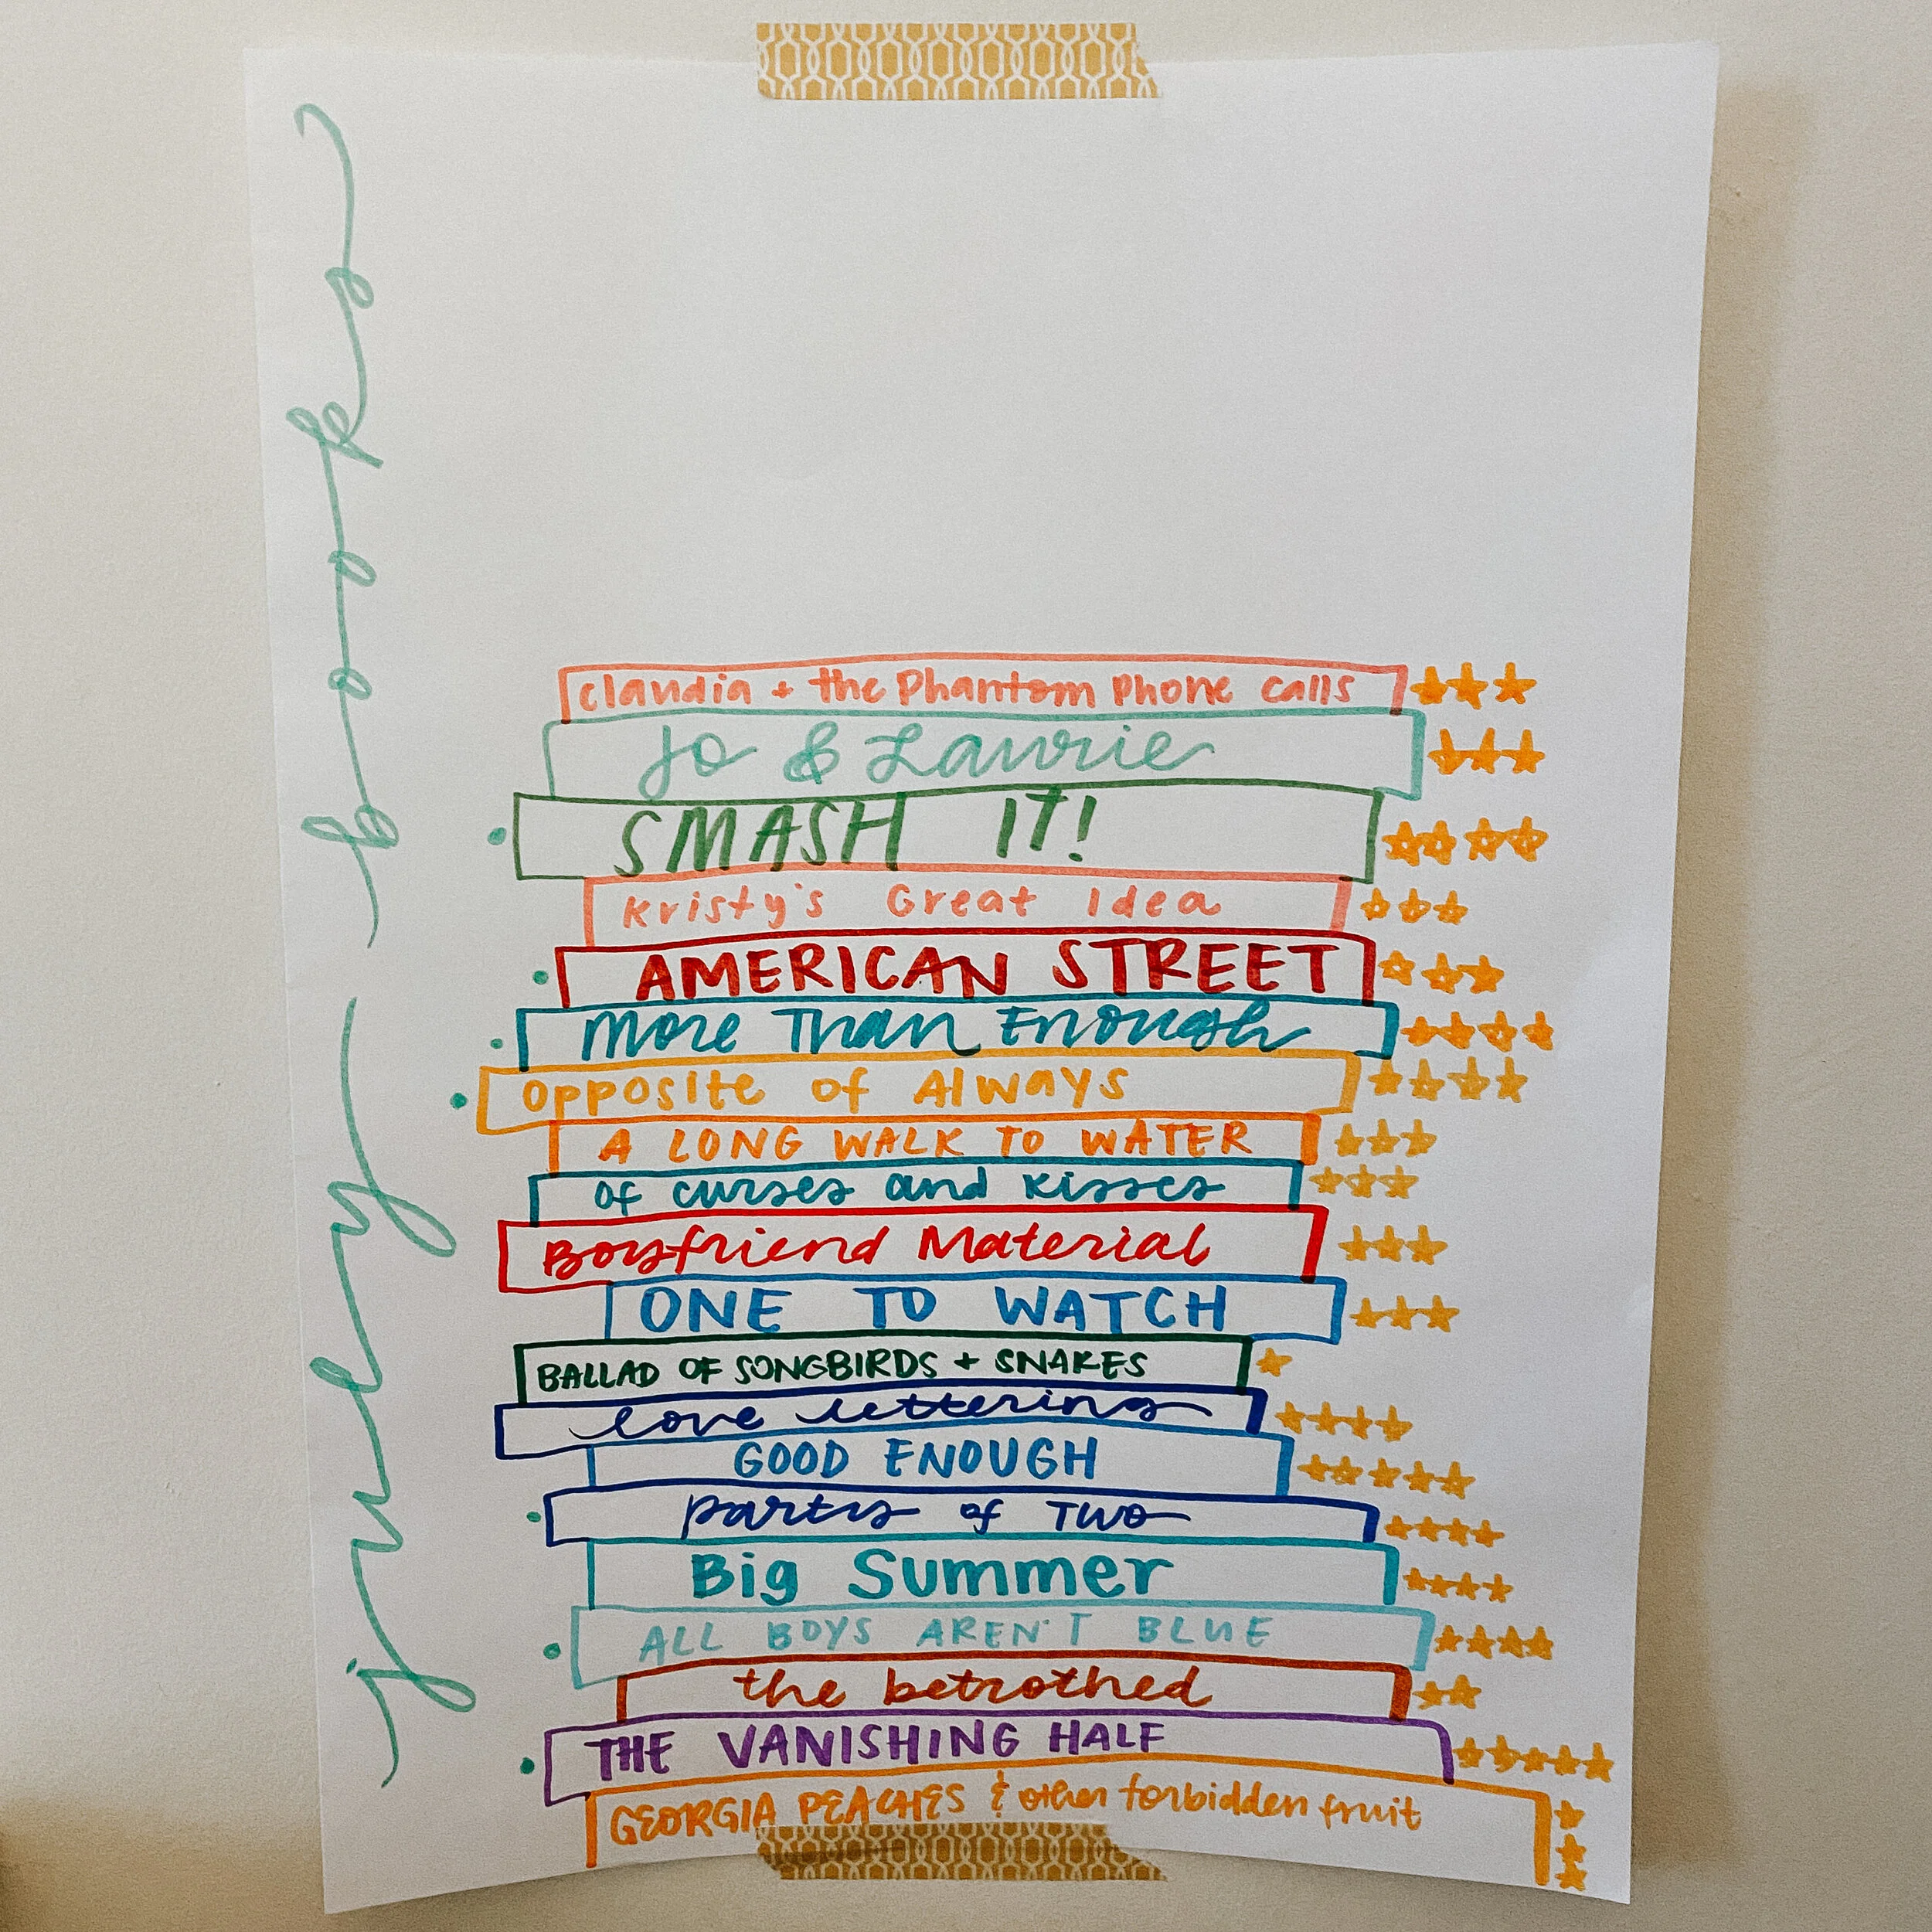 july books
claudia + the Phantom Phone calls
Jo & Laurie
SMASH IT!
Kristy's Great Idea
AMERICAN STREET
More Than Enough
opposite of Always
A LONG WALK TO WATER
of curses and kisses
Boyfriend Material
ONE TO WATCH
BALLAD OF SONGBIRDS + SNAKES
love lettering
GOOD ENOUGH
party of Two
Big Summer
ALL BOYS AREN'T BLUE
the betrothed
THE VANISHING HALF
GEORGIA PEACHES & other forbidden fruit